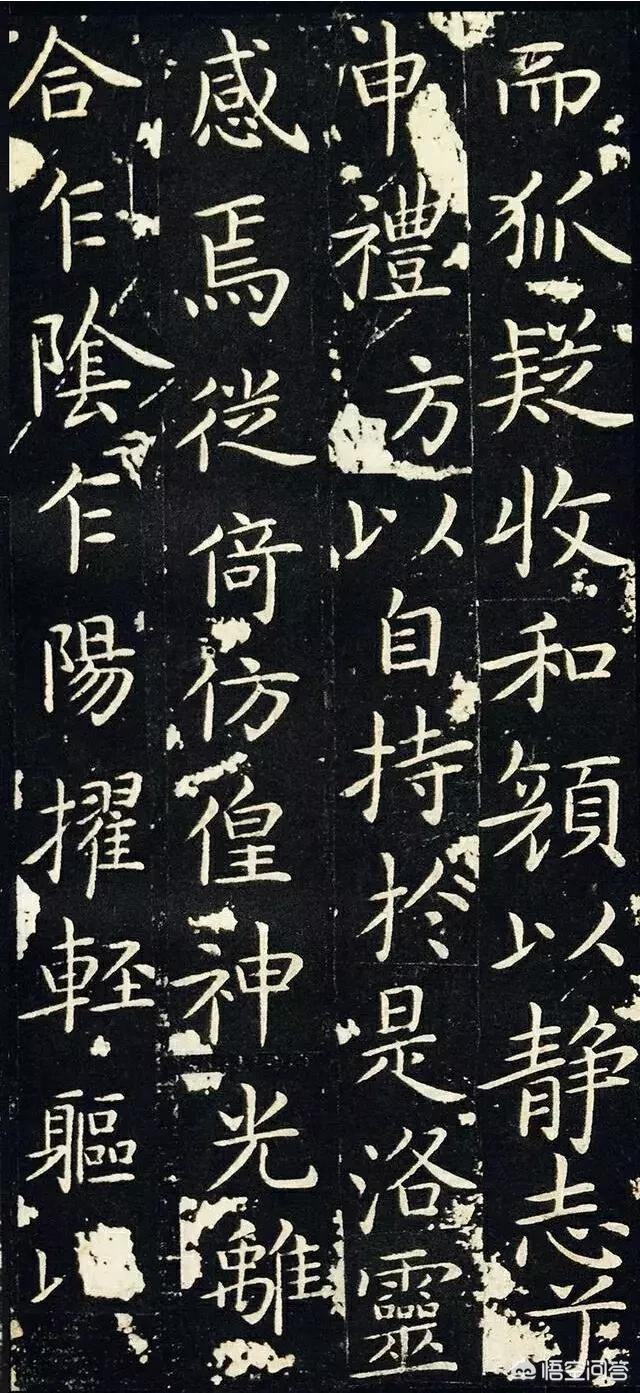 而狐疑收和顔以静志兮
申禮防以自持於是洛靈
感焉徙倚彷徨神光離
合乍陰乍陽擢輕軀
悟空问答